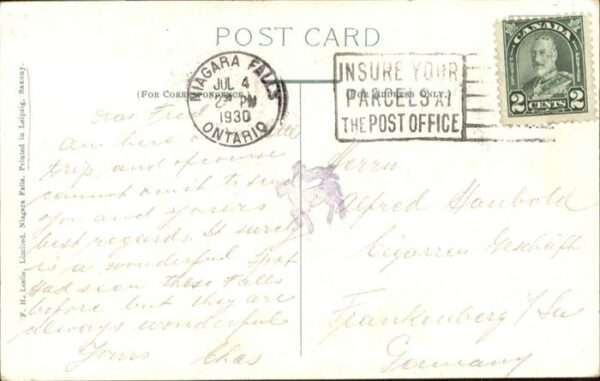 POST CARD
CANADA
2 CENTS 2
NIAGARA FALLS
JUL 4
PM
1930
ONTARIO
INSURE YOUR
PARCELS AT
THE POST OFFICE
(FOR CORRESPONDENCE.)
(FOR ADDRESS ONLY.)
F. H. Leslie, Limited, Niagara Falls. Printed in Leipzig, Saxony.
Fred
am here
trip and of course
cannot omit to send
you and yours
best regards. It surely
is a wonderful spot
Had seen these Falls
before but they are
always wonderful
Yours Chas
Herrn
Alfred Haubold
Cigarren Geschäft
Frankenberg i/Sa
Germany